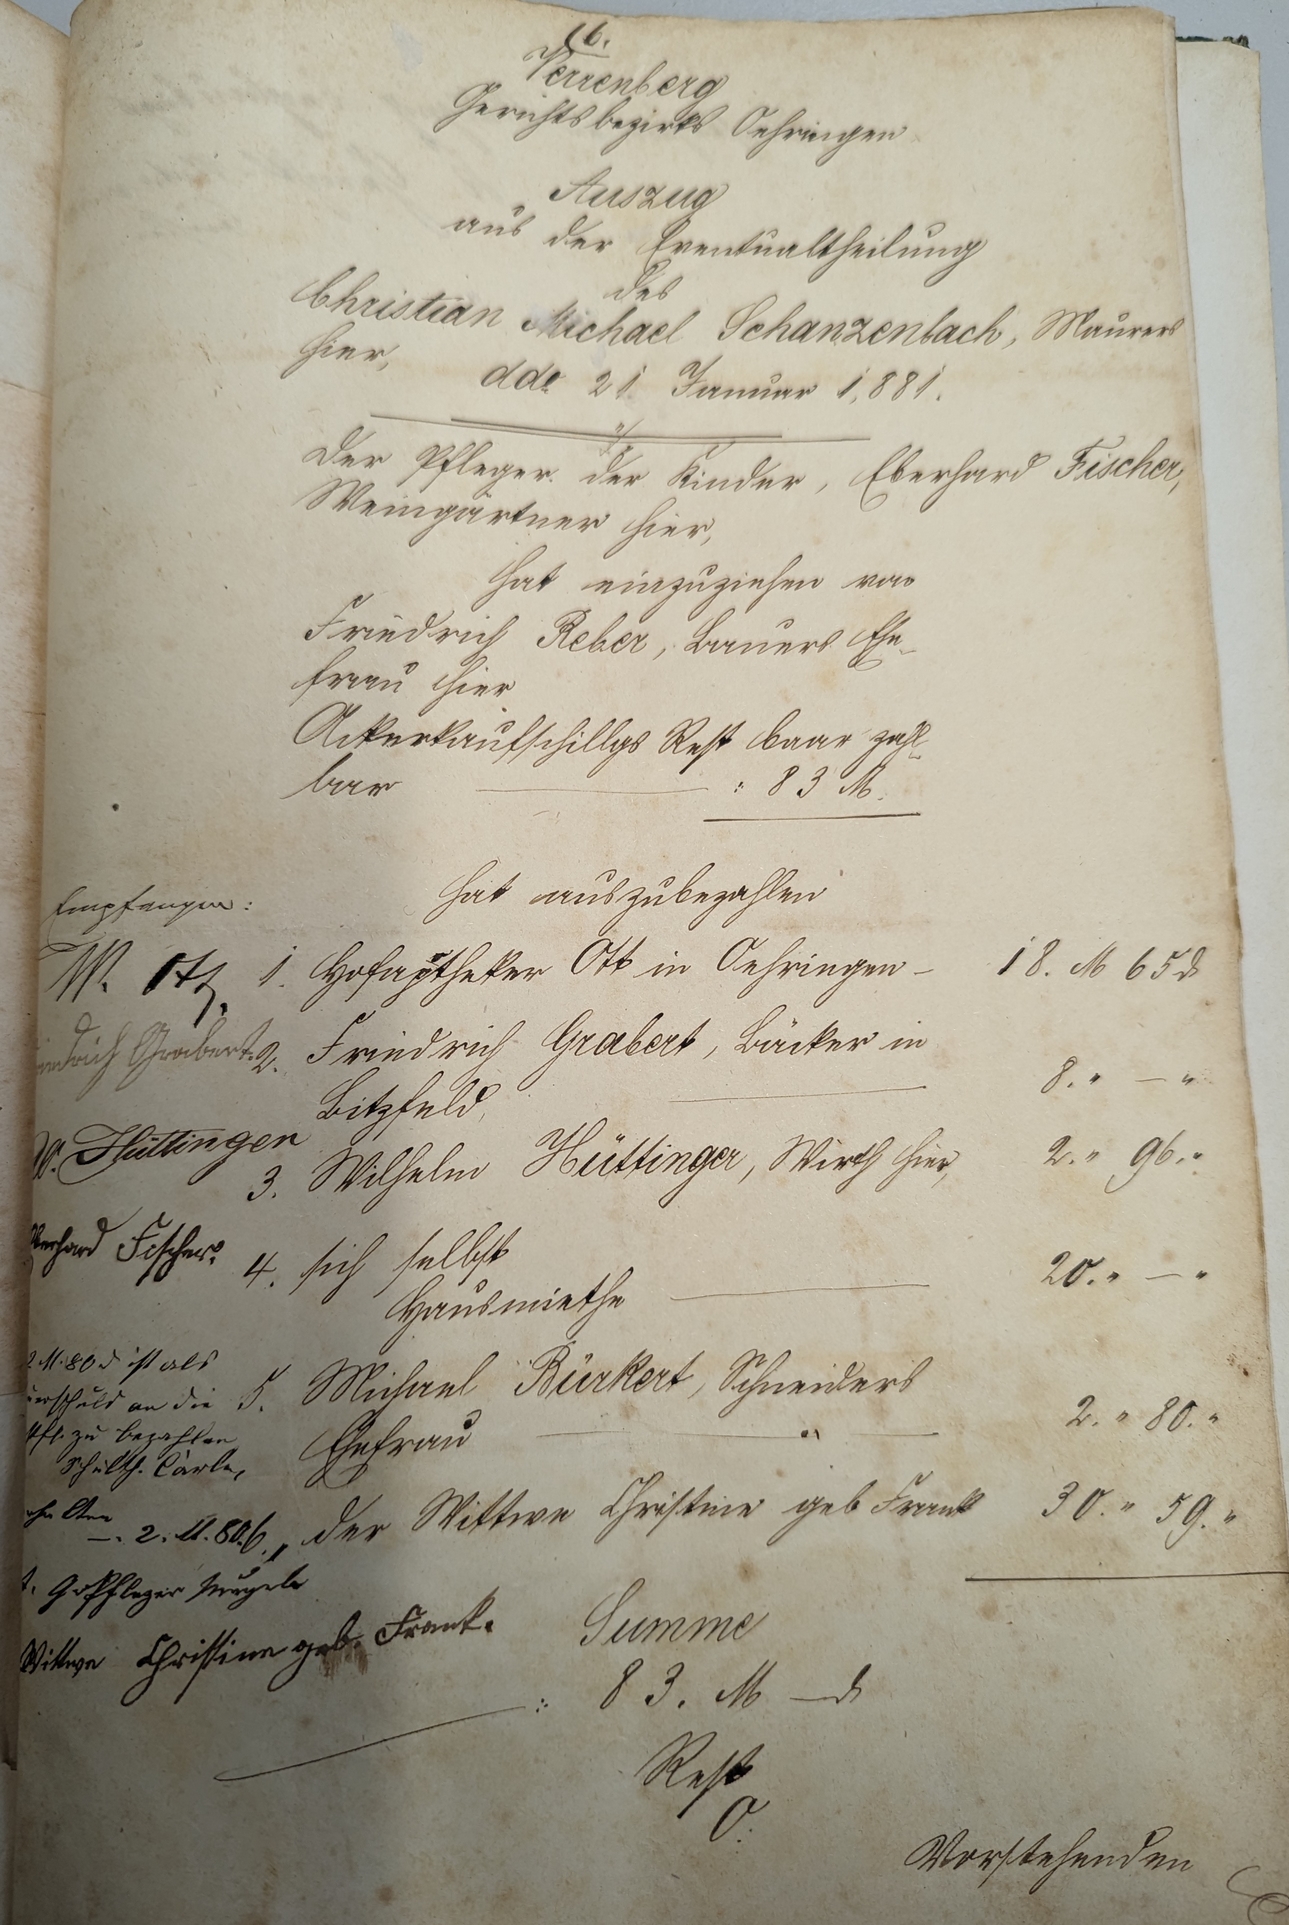 16.
Verrenberg
Gerichtsbezirks Oehringen
Auszug
aus der Eventualtheilung
des
Christian Michael Schanzenbach, Maurers
hier,
ddo 21 Januar 1,881.
Der Pfleger der Kinder, Eberhard Fischer,
Weingärtner hier,
hat einzuziehen von
Friedrich Reber, Bauers Ehe-
frau hier
Ackerkaufschillgs Rest baar zahl-
bar : 83 M.
hat auszubezahlen
Empfangen:
W. Ott. 1. Hofapotheker Ott in Oehringen – 18. M 65 d
Friedrich Grabert. 2. Friedrich Grabert, Bäcker in
Bitzfeld, 8. " — "
W. Hüttinger
3. Wilhelm Hüttinger, Wirth hier, 2. " 96. "
Eberhard Fischer. 4. sich selbst
Hausmiethe 20. " — "
2. M. 80 d ist als
an die 5. Michael Bürkert, Schneiders
zu bezahlen Ehefrau " 2. " 80. "
Schulth. Carle,
—. 2. M. 80. 6. der Wittwe Christine geb Frank 30. " 59. "
Wittwe Christine geb. Frank. Summe
: 83. M — d
Rest
0.
Vorstehenden